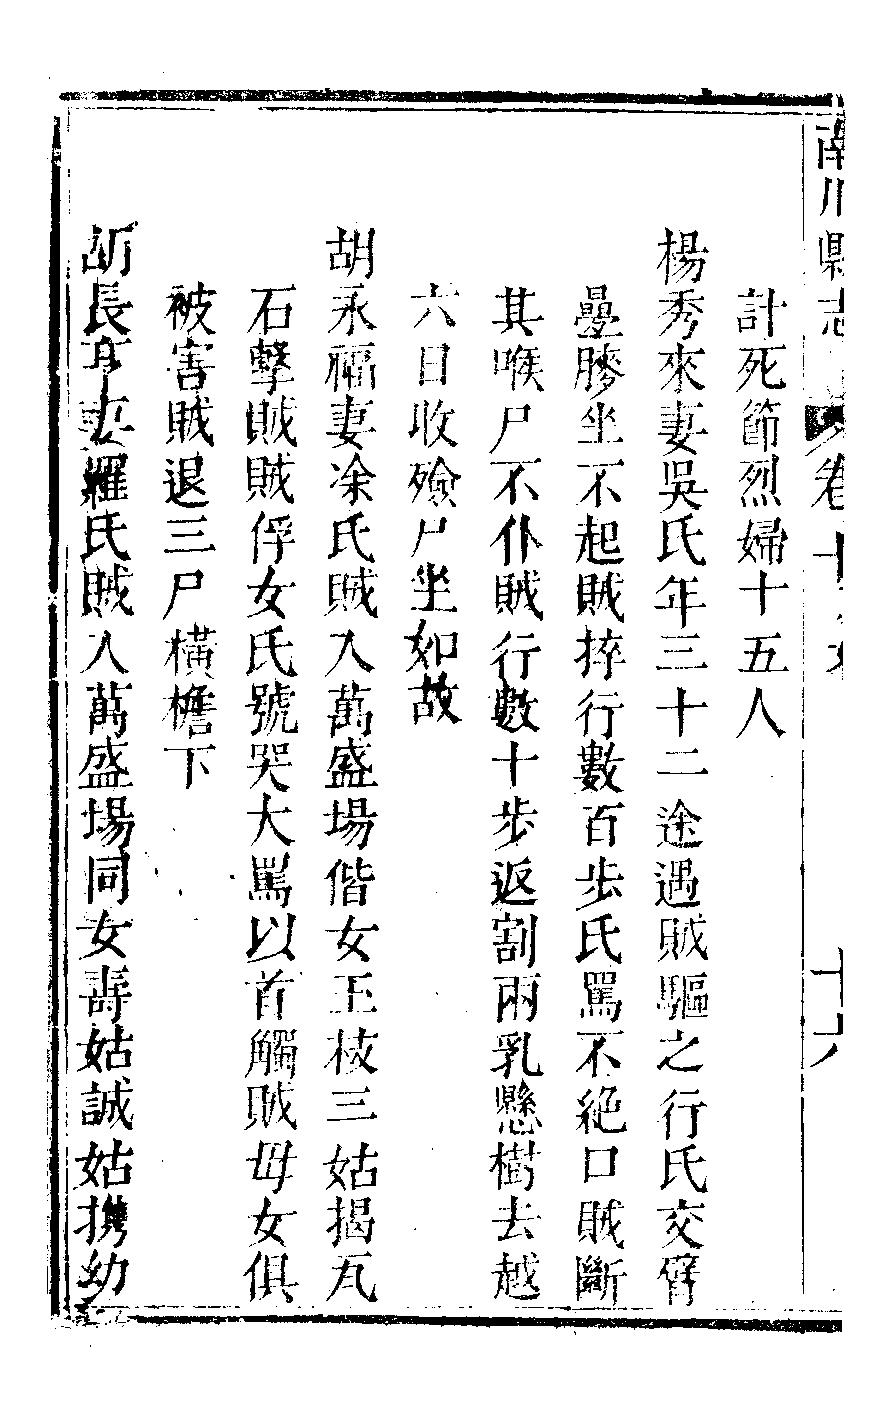 南川縣志
卷十
十六
計死節烈婦十五人
楊秀來妻吳氏年三十二途遇賊驅之行氏交臂
疊膝坐不起賊捽行數百步氏罵不絕口賊斷
其喉尸不仆賊行數十步返割兩乳懸樹去越
六日收殮尸坐如故
胡永福妻凃氏賊入萬盛場偕女玉枝三姑揭瓦
石擊賊賊俘女氏號哭大罵以首觸賊母女俱
被害賊退三尸橫檐下
胡長亨妻羅氏賊入萬盛場同女壽姑誠姑携幼